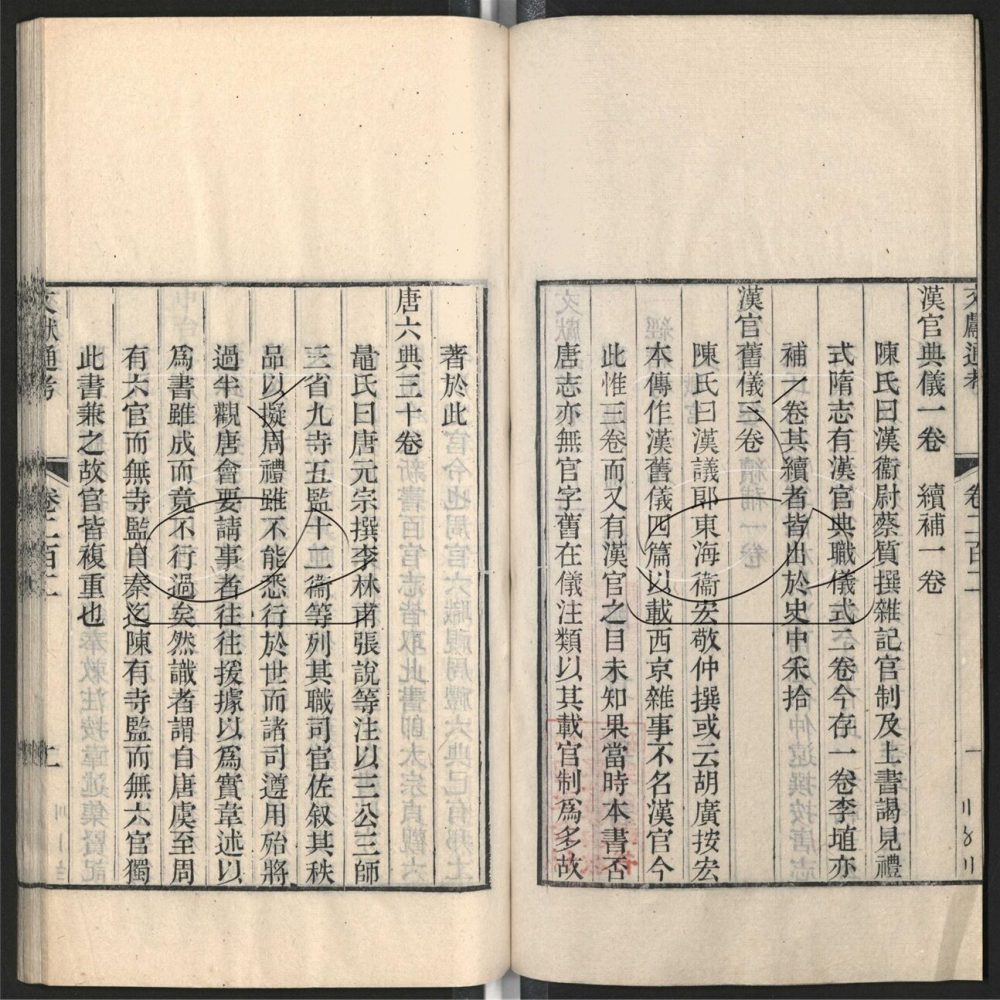 文獻通考 卷二百二
漢官典儀一卷 續補一卷
陳氏曰漢衞尉蔡質撰雜記官制及上書謁見禮
式隋志有漢官典職儀式二卷今存一卷李埴亦
補一卷其續者皆出於史中采拾
漢官舊儀三卷
陳氏曰漢議郎東海衞宏敬仲撰或云胡廣按宏
本傳作漢舊儀四篇以載西京雜事不名漢官今
此惟三卷而又有漢官之目未知果當時本書否
唐志亦無官字舊在儀注類以其載官制爲多故
著於此
唐六典三十卷
鼂氏曰唐元宗撰李林甫張說等注以三公三師
三省九寺五監十二衞等列其職司官佐叙其秩
品以擬周禮雖不能悉行於世而諸司遵用殆將
過半觀唐會要請事者往往援據以爲實韋述以
爲書雖成而竟不行過矣然識者謂自唐虞至周
有六官而無寺監自秦迄陳有寺監而無六官獨
此書兼之故官皆複重也
文獻通考 卷二百二